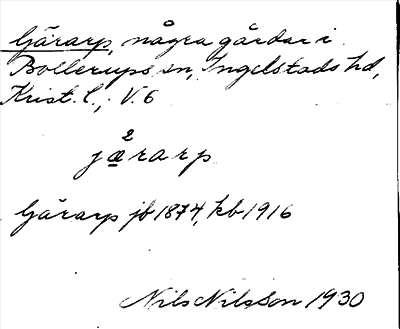 Gärarp, några gårdar i
Bollerups sn, Ingelstads hd,
Krist. l., V. 6
2
jærarp
Gärarp jb 1874, kb 1916
Nils Nilsson 1930